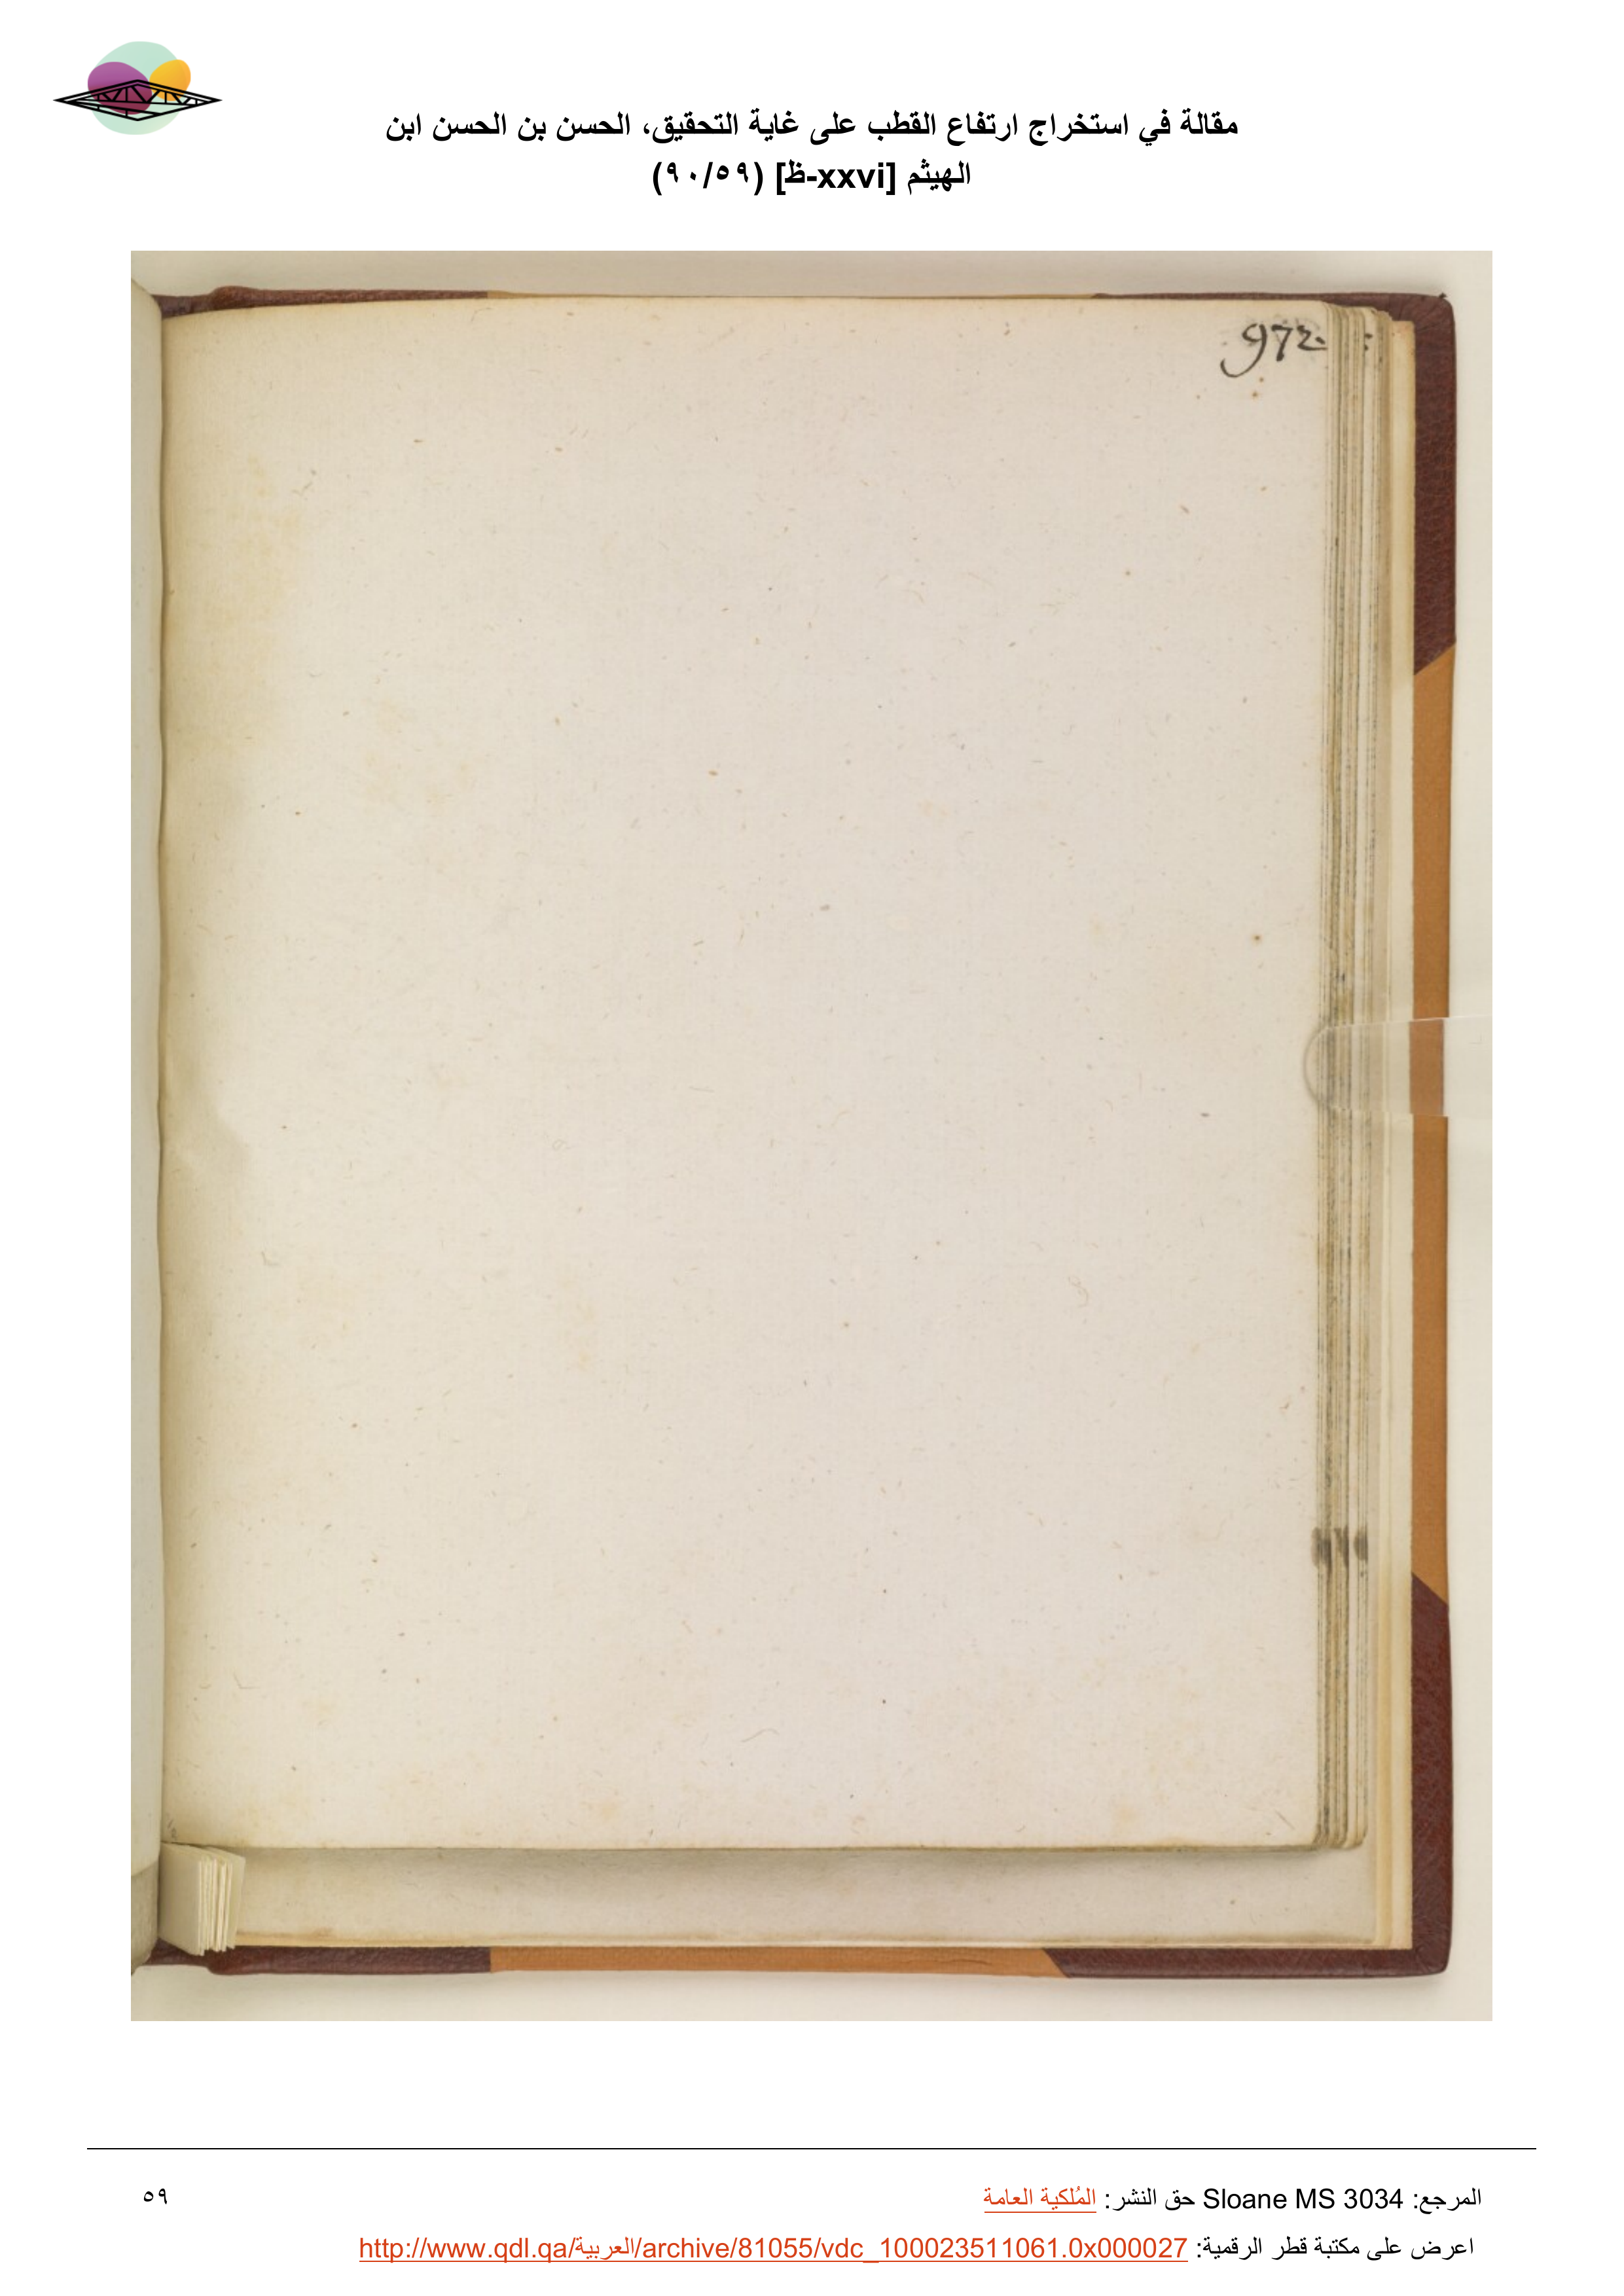 مقالة في استخراج ارتفاع القطب على غاية التحقيق، الحسن بن الحسن ابن
الهيثم [xxvi-ظ] (٩٠/٥٩)
972.
المرجع: Sloane MS 3034 حق النشر: المُلكية العامة
٥٩
اعرض على مكتبة قطر الرقمية: http://www.qdl.qa/العربية/archive/81055/vdc_100023511061.0x000027